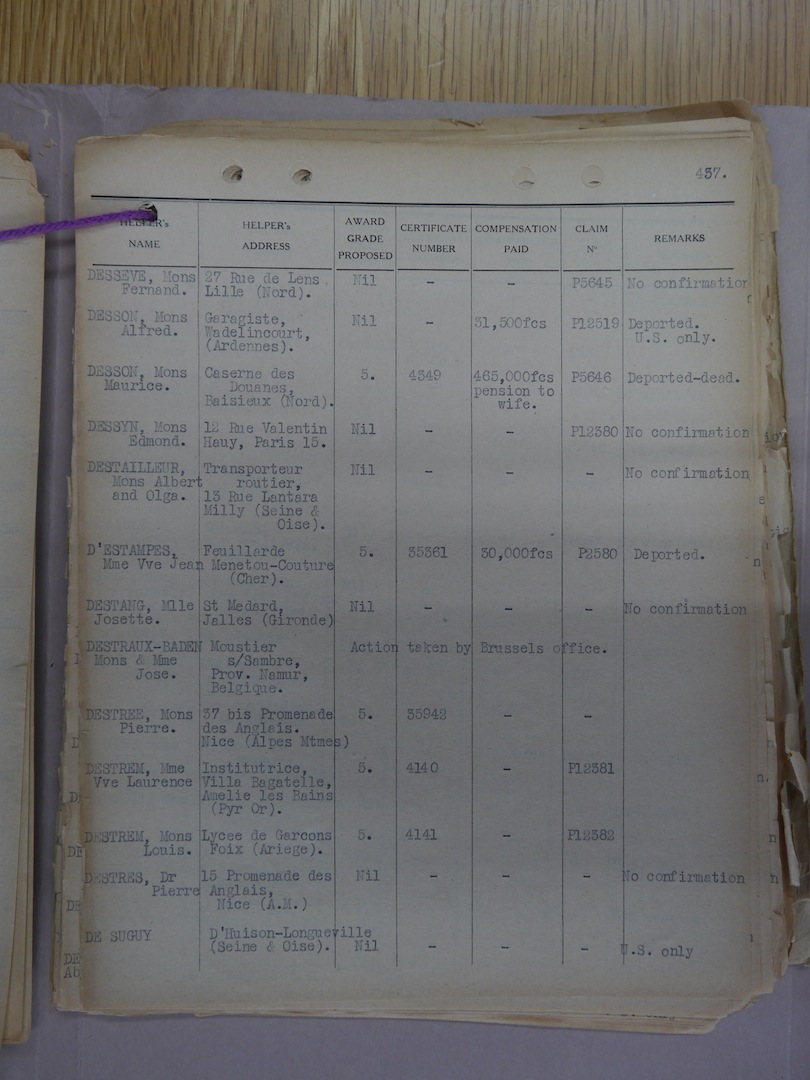 437.
HELPER's NAME | HELPER's ADDRESS | AWARD GRADE PROPOSED | CERTIFICATE NUMBER | COMPENSATION PAID | CLAIM Nº | REMARKS
DESSEVE, Mons | 27 Rue de Lens | Nil | - | - | P5645 | No confirmation
Fernand. | Lille (Nord).
DESSON, Mons | Garagiste, | Nil | - | 31,500fcs | P12519 | Deported.
Alfred. | Wadelincourt, | U.S. only.
(Ardennes).
DESSON, Mons | Caserne des | 5. | 4349 | 465,000fcs | P5646 | Deported-dead.
Maurice. | Douanes, | pension to
Baisieux (Nord). | wife.
DESSYN, Mons | 12 Rue Valentin | Nil | - | - | P12380 | No confirmation
Edmond. | Hauy, Paris 15.
DESTAILLEUR, | Transporteur | Nil | - | - | - | No confirmation
Mons Albert | routier,
and Olga. | 13 Rue Lantara
Milly (Seine &
Oise).
D'ESTAMPES, | Feuillarde | 5. | 35361 | 30,000fcs | P2580 | Deported.
Mme Vve Jean | Menetou-Couture
(Cher).
DESTANG, Mlle | St Medard, | Nil | - | - | - | No confirmation
Josette. | Jalles (Gironde)
DESTRAUX-BADEN | Moustier | Action taken by Brussels office.
Mons & Mme | s/Sambre,
Jose. | Prov. Namur,
Belgique.
DESTREE, Mons | 37 bis Promenade | 5. | 35942 | - | -
Pierre. | des Anglais.
Nice (Alpes Mtmes)
DESTREM, Mme | Institutrice, | 5. | 4140 | - | P12381
Vve Laurence | Villa Bagatelle,
Amelie les Bains
(Pyr Or).
DESTREM, Mons | Lycee de Garcons | 5. | 4141 | - | P12382
Louis. | Foix (Ariege).
DESTRES, Dr | 15 Promenade des | Nil | - | - | - | No confirmation
Pierre | Anglais,
Nice (A.M.)
DE SUGUY | D'Huison-Longueville
(Seine & Oise). | Nil | - | - | - | U.S. only